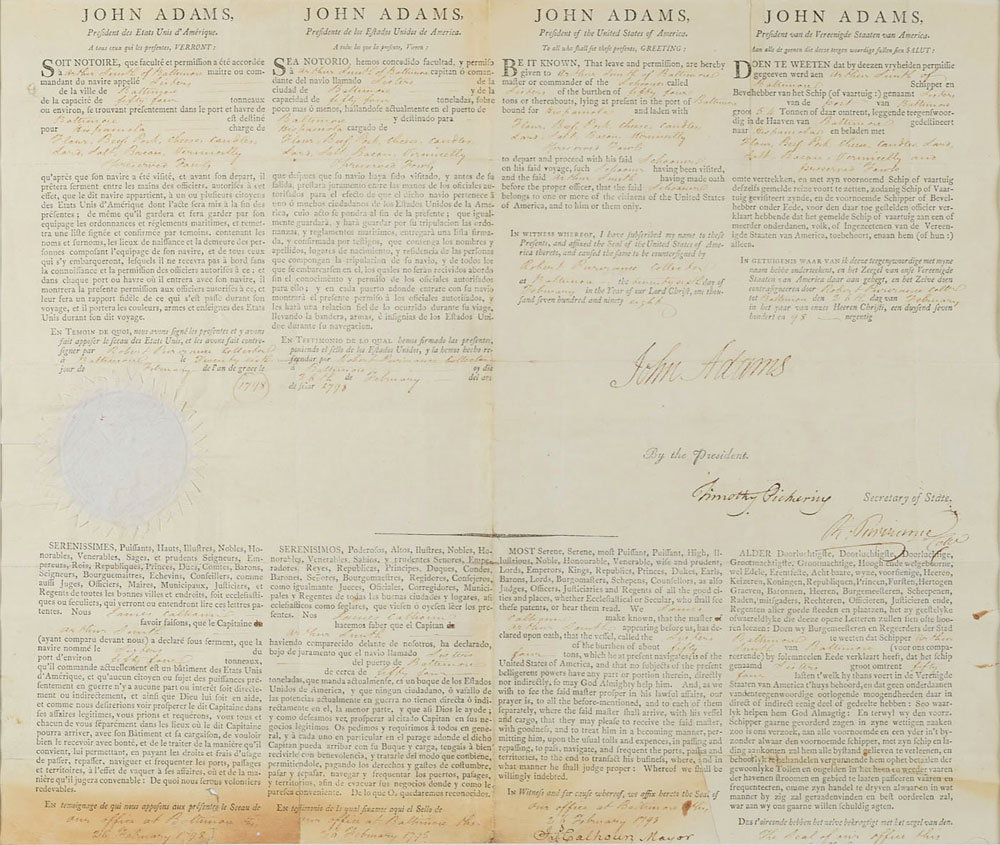 JOHN ADAMS,
Président des Etats Unis d'Amérique.
A tous ceux qui les présentes, VERRONT:
SOIT NOTOIRE, que faculté et permission a été accordée
à Arthur Smith of Baltimore maitre ou com-
mandant du navire appellé
de la ville de Baltimore
de la capacité de fifty four tonneaux
ou environ, se trouvant présentement dans le port et havre de
Baltimore est destiné
pour Hispaniola chargé de
Flour, Beef, Pork, Cheese, Candles,
Lard, Salt, Bacon, Vermicelly
Preserved Fowls
qu'après que son navire a été visité, et avant son départ, il
prêtera serment entre les mains des officiers, autorisés à cet
effet, que le dit navire appartient, à un ou plusieurs citoyens
des Etats Unis d'Amérique dont l'acte sera mis à la fin des
présentes; de même qu'il gardera et fera garder par son
équipage les ordonnances et réglemens maritimes, et remet-
tra une liste signée et confirmée par témoins, contenant les
noms et surnoms, les lieux de naissance et la demeure des per-
sonnes composant l'équipage de son navire, et de tous ceux
qui s'y embarqueront, lesquels il ne recevra pas à bord sans
la connaissance et la permission des officiers autorisés à ce; et
dans chaque port ou havre où il entrera avec son navire, il
montrera la présente permission aux officiers autorisés à ce, et
leur fera un rapport fidèle de ce qui s'est passé durant son
voyage, et il portera les couleurs, armes et enseignes des Etats
Unis durant son dit voyage.
EN TEMOIN DE QUOI, nous avons signé les présentes et y avons
fait apposer le sceau des Etats Unis, et les avons fait contre-
signer par Robert Purviance Collector
à Baltimore le twenty sixth
jour de February de l'an de grace le
(1798)
JOHN ADAMS,
Presidente de los Estados Unidos de America.
A todos los que la presente, Vieren:
SEA NOTORIO, hemos concedido facultad, y permiso
à Arthur Smith of Baltimore capitan ó coman-
dante del navio llamado
ciudad de Baltimore y de la
capacidad de fifty four toneladas, sobre
poco mas ó menos, hallandose actualmente en el puerto de
Baltimore y destinado para
Hispaniola cargado de
Flour, Beef, Pork, Cheese, Candles,
Lard, Salt, Bacon, Vermicelly
Preserved Fowls
que despues que su navio haya sido visitado, y antes de su
salida, prestara juramento entre las manos de los oficiales au-
torizados para el efecto de que el dicho navio pertenece à
uno ó muchos ciudadanos de los Estados Unidos de la Ame-
rica, cuio acto se pondra al fin de la presente; que igual-
mente guardará, y hará guardar por su tripulacion las orde-
nanzas, y reglamentos maritimos, entregará una lista firma-
da, y confirmada por testigos, que contenga los nombres y
apellidos, lugares de nacimiento, y residencia de las personas
que componen la tripulacion de su navio, y de todos los
que se embarcasen en el, los quales no serán recividos abordo
sin el conocimiento y permiso de los oficiales autorizados
para ello; y en cada puerto adonde entrare con su navio
montrará el presente permiso à los oficiales autorizados, y
les hará una relacion fiel de lo ocurrido durante su viage,
llevando la bandera, armas, ó insignias de los Estados Uni-
dos durante su navegacion.
EN TESTIMONIO DE LO QUAL hemos firmado las presentes,
poniendo el sello de los Estados Unidos, y la hemos hecho re-
frendar por Robert Purviance Collector
à Baltimore oy dia
26th de February del año
de 1798
JOHN ADAMS,
President of the United States of America.
To all who shall see these presents, GREETING:
BE IT KNOWN, That leave and permission, are hereby
given to Arthur Smith of Baltimore
master or commander of the Schooner called
of the burthen of fifty four
tons or thereabouts, lying at present in the port of Baltimore
bound for Hispaniola and laden with
Flour, Beef, Pork, Cheese, Candles,
Lard, Salt, Bacon, Vermicelly
Preserved Fowls
to depart and proceed with his said Schooner
on his said voyage, such Schooner having been visited,
and the said Arthur Smith having made oath
before the proper officer, that the said Schooner
belongs to one or more of the citizens of the United States
of America, and to him or them only.
IN WITNESS WHEREOF, I have subscribed my name to these
Presents, and affixed the Seal of the United States of Ame-
rica thereto, and caused the same to be countersigned by
Robert Purviance Collector
at Baltimore the twenty sixth day of
February in the Year of our Lord Christ, one thou-
sand seven hundred and ninety eight.
JOHN ADAMS,
President van de Vereenigde Staaten van America.
Aan alle de geenen die deeze tegenwoordige sullen sien SALUT:
DOEN TE WEETEN dat by deezen vryheiden permissie
gegeeven werd aen Arthur Smith of
Baltimore Schipper en
Bevelhebber van het Schip (of vaartuig:) genaamt
van de Port van Baltimore
groot 54 Tonnen of daar omtrent, leggende tegenwoor-
dig in de Haaven van Baltimore gedestineert
naar Hispaniola en beladen met
Flour, Beef, Pork, Cheese, Candles, Lard,
Salt, Bacon, Vermicelly and
Preserved Fowls
omte vertrekken, en met zyn voornoemd Schip of vaartuig
deszelfs gemelde reize voort te zetten, zodanig Schip of Vaar-
tuig gevisiteert zynde, en de voornoemde Schipper of Bevel-
hebber onder Eede, voor den daar toe gestelden officier ver-
klaart hebbende dat het gemelde Schip of vaartuig aan een of
meerder onderdaanen, volk, of Ingezeetenen van de Vereenig-
de Staaten van America, toebehoort, enaan hem (of hun:)
alleen.
IN GETUIGENIS WAAR VAN ik deeze teegenwoordige met myne
naam hebbe onderteekent, en het Zeegel van onse Vereenigde
Staaten van America daar aan gehegt, en het Zelve doen
contrasigneeren door Robert Purviance Collr
tot Baltimore den 26th dag van February
in het jaar van onzes Heeren Christi, een duysend seven
hondert en 98 negentig
John Adams
By the President.
Timothy Pickering Secretary of State.
R. Purviance
SERENISSIMES, Puissants, Hauts, Illustres, Nobles, Ho-
norables, Venerables, Sages, et prudents Seigneurs, Em-
pereurs, Rois, Republiques, Princes, Ducs, Comtes, Barons,
Seigneurs, Bourguemaitres, Echevins, Conseillers, comme
aussi Juges, Officiers, Maires, Municipaux, Justiciers, et
Regents de toutes les bonnes villes et endroits, soit ecclésiasti-
ques ou séculiers, qui verront ou entendront lire ces lettres pa-
tentes. Nous James Calhoun
savoir faisons, que le Capitaine
Arthur Smith
(ayant comparu devant nous) a déclaré sous serment, que la
navire nommé le du
port d'environ fifty four tonneaux,
qu'il commande actuellement est un bâtiment des Etats Unis
d'Amérique, et qu'aucun citoyen ou sujet des puissances pré-
sentement en guerre n'y a aucune part ou intérêt soit directe-
ment ou indirectement, et ainsi que Dieu lui soit en aide,
et comme nous desirerions voir prosperer le dit Capitaine dans
ses affaires légitimes, vous prions et requérons, vous tous et
chacun de vous séparément dans les lieux où le dit Capitaine
pourra arriver, avec son Bâtiment et sa cargaison, de vouloir
bien le recevoir avec bonté, et de le traiter de la manière qu'il
convient, lui permettant, en payant les droits et frais d'usage
de passer, repasser, naviguer et frequenter les ports, passages
et territoires, à l'effet de vaquer à ses affaires, où et de la ma-
nière qu'il jugera convenable: De quoi nous serons volontiers
redevables.
En temoignage de qui nous apposons aux présentes le Sceau de
our office at Baltimore the
26 February 1798
SERENISIMOS, Poderosos, Altos, Ilustres, Nobles, Ho-
norables, Venerables, Sabios, y prudentes Senores, Empe-
radores, Reyes, Republicas, Principes, Duques, Condes,
Barones, Señores, Bourgomaestres, Regidores, Consejeros,
como igualmente Jueces, Oficiales, Corregidores, Munici-
pales y Regentes de todas las buenas ciudades y lugares, asi
eclesiasticos como seglares, que viesen ó oyesen léer los pre-
sentes. Nos James Calhoun
hacemos saber que el Capitan
Arthur Smith
haviendo comparecido delante de nosotros, ha declarado,
bajo de juramento que el navio llamado
del puerto de Baltimore
de cerca de fifty four
toneladas, que manda actualmente, es un buque de los Estados
Unidos de America, y que ningun ciudadano, ó vasallo de
las potencias actualmente en guerra no tienen directa ó indi-
rectamente en el, la menor parte, y que asi Dios le ayude;
y como desamos ver prosperar al citado Capitan en sus ne-
gocios legitimos Os pedimos y requirimos à todos en gene-
ral, y à cada uno en particular en el parage adonde el dicho
Capitan pueda arribar con su Buque y carga, tengais à bien
recivirle con benevolencia, y tratarle del modo que conviene,
permitiendole, pagando los derechos y gastos de costumbre,
pasar y repasar, navegar y frequentar los puertos, pasages,
y territorios, afin de evacuar sus negocios donde y como le
paresca conveniente. De lo que Os quedaremos reconocidos.
En testimonio de lo qual fixamos aqui el Sello de
our office at Baltimore the
26 February 1798
MOST Serene, Serene, most Puissant, Puissant, High, Il-
lustrious, Noble, Honourable, Venerable, wise and prudent,
Lords, Emperors, Kings, Republics, Princes, Dukes, Earls,
Barons, Lords, Burgomasters, Schepens, Counsellors, as also
Judges, Officers, Justiciaries and Regents of all the good ci-
ties and places, whether Ecclesiastical or Secular, who shall see
these patents, or hear them read. We James
Calhoun make known, that the master of
Arthur Smith appearing before us, has de-
clared upon oath, that the vessel, called the
of the burthen of about fifty
four tons, which he at present navigates is of the
United States of America, and that no subjects of the present
belligerent powers have any part or portion therein, directly
nor indirectly, so may God Almighty help him. And, as we
wish to see the said master prosper in his lawful affairs, our
prayer is, to all the before-mentioned, and to each of them
separately, where the said master shall arrive, with his vessel
and cargo, that they may please to receive the said master,
with goodness, and to treat him in a becoming manner, per-
mitting him, upon the usual tolls and expences, in passing and
repassing, to pass, navigate, and frequent the ports, passes and
territories, to the end to transact his business, where, and in
what manner he shall judge proper: Whereof we shall be
willingly indebted.
In Witness and for cause whereof, we affix hereto the Seal of
our office at Baltimore the
26 February 1798
Js Calhoun Mayor
ALDER Doorluchtigste, Doorluchtige,
Grootmachtigste, Grootmachtige, Hoogh ende welgeborne,
wel Edele, Eerentfeste, Acht baare, wyze, voorsienige, Heeren,
Keizeren, Koningen, Republiquen, Princen, Forsten, Hertogen
Graeven, Baronnen, Heeren, Burgemeesteren, Scheepenen,
Raaden, mitsgaders, Rechteren, Officieren, Justicieren ende,
Regenten aller goede steeden en plaatzen, het zy geestelyke
ofwaereldlyke die deeze opene Letteren zullen sien ofte hoo-
ren leezen: Doen wy Burgemeesteren en Regeerders der Stad
Baltimore te weeten dat Schipper Arthur
Smith van Baltimore (voor ons compa-
reerende) by solemneelen Eede verklaart heeft, dat het schip
genaamd groot omtrent fifty
four lasten t'welk hy thans voert in de Vereenigde
Staaten van America t'huys behoord, en dat geen onderdaanen
vandentegenwoordige oorlogende moogendheeden daar in
direct of indirect eenig deel of gedeelte hebben: Soo waar-
lyk helpen hem God Almagtig: En terwyl wy den voorsz
Schipper gaarne gevorderd zagen in zyne wettigen zaaken
zoo is ons verzoek, aan alle voornoemde en een yder in't by-
zonder alwaar den voornoemde Schipper, met zyn schip en la-
ding aankomen zal hen alle bystand gelieven te verleenen, en
behoorlyk te behandelen vergunnende hem ophet betaelen der
gewoonlyke Tollen en ongelden in het heen en weder vaaren
der havenen stroomen en gebied te laaten passeeren vaaren en
frequenteeren, omme zyn handel te dryven alwaar en in wat
manner hy zig zal geraaden vinden en best oordeelen zal,
war aan wy ons gaarne willen schuldig agten.
Des t'oirconde hebben het zelve bekragtigt met het zegel van den.
The Seal of our office this